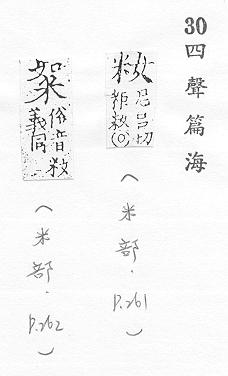 30四聲篇海
籹 尼呂切
粔籹(○)
(米部.P.261)
俗音籹
義同
(米部.P.262)